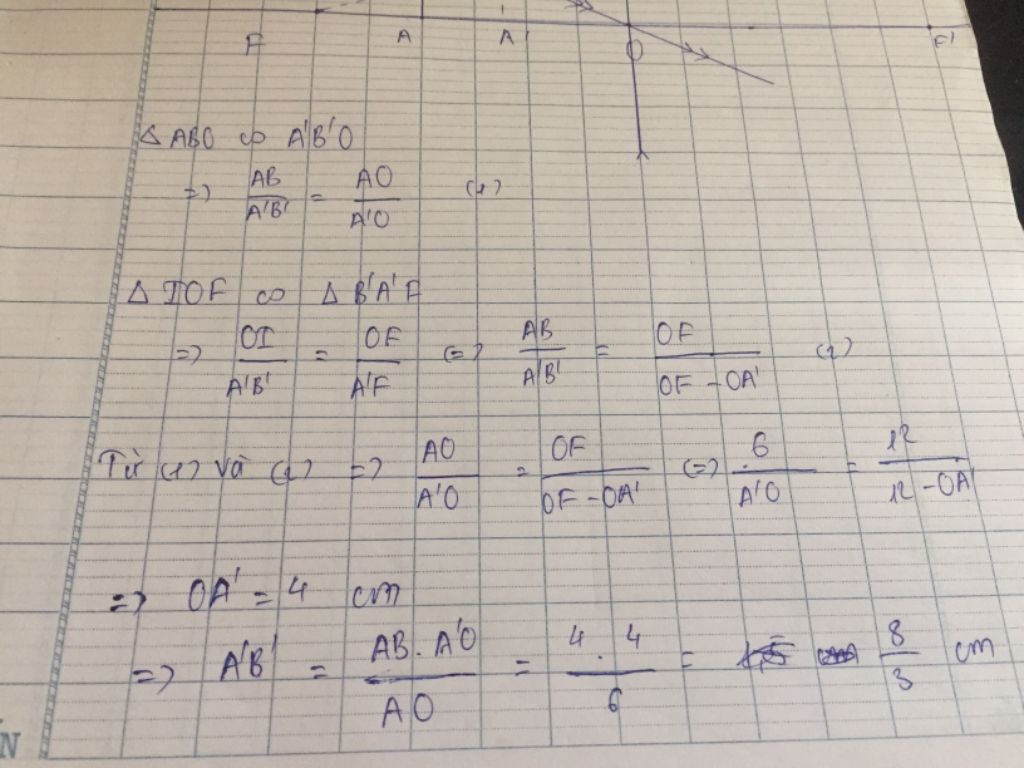 F A A' O F'
Δ ABO ∽ A'B'O
=> AB/A'B' = AO/A'O (1)
Δ IOF ∽ Δ B'A'F
=> OI/A'B' = OF/A'F <=> AB/A'B' = OF/OF - OA' (2)
Từ (1) và (2) => AO/A'O = OF/OF - OA' <=> 6/A'O = 12/12 - OA'
=> OA' = 4 cm
=> A'B' = AB.A'O/AO = 4.4/6 = 8/3 cm
N